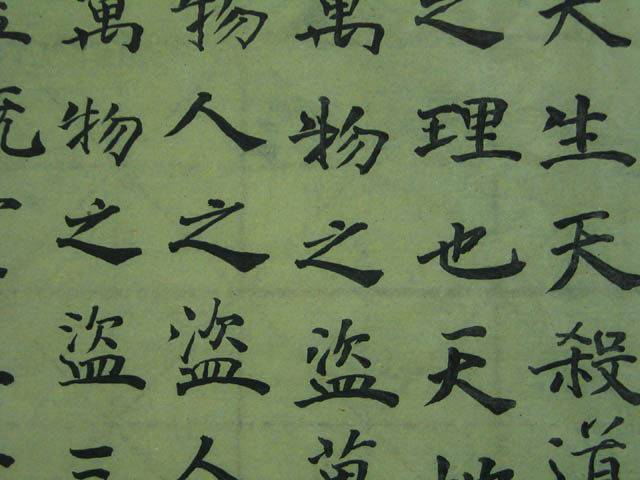 天生天殺道
之理也天地
萬物之盜萬
物人之盜人
萬物之盜三